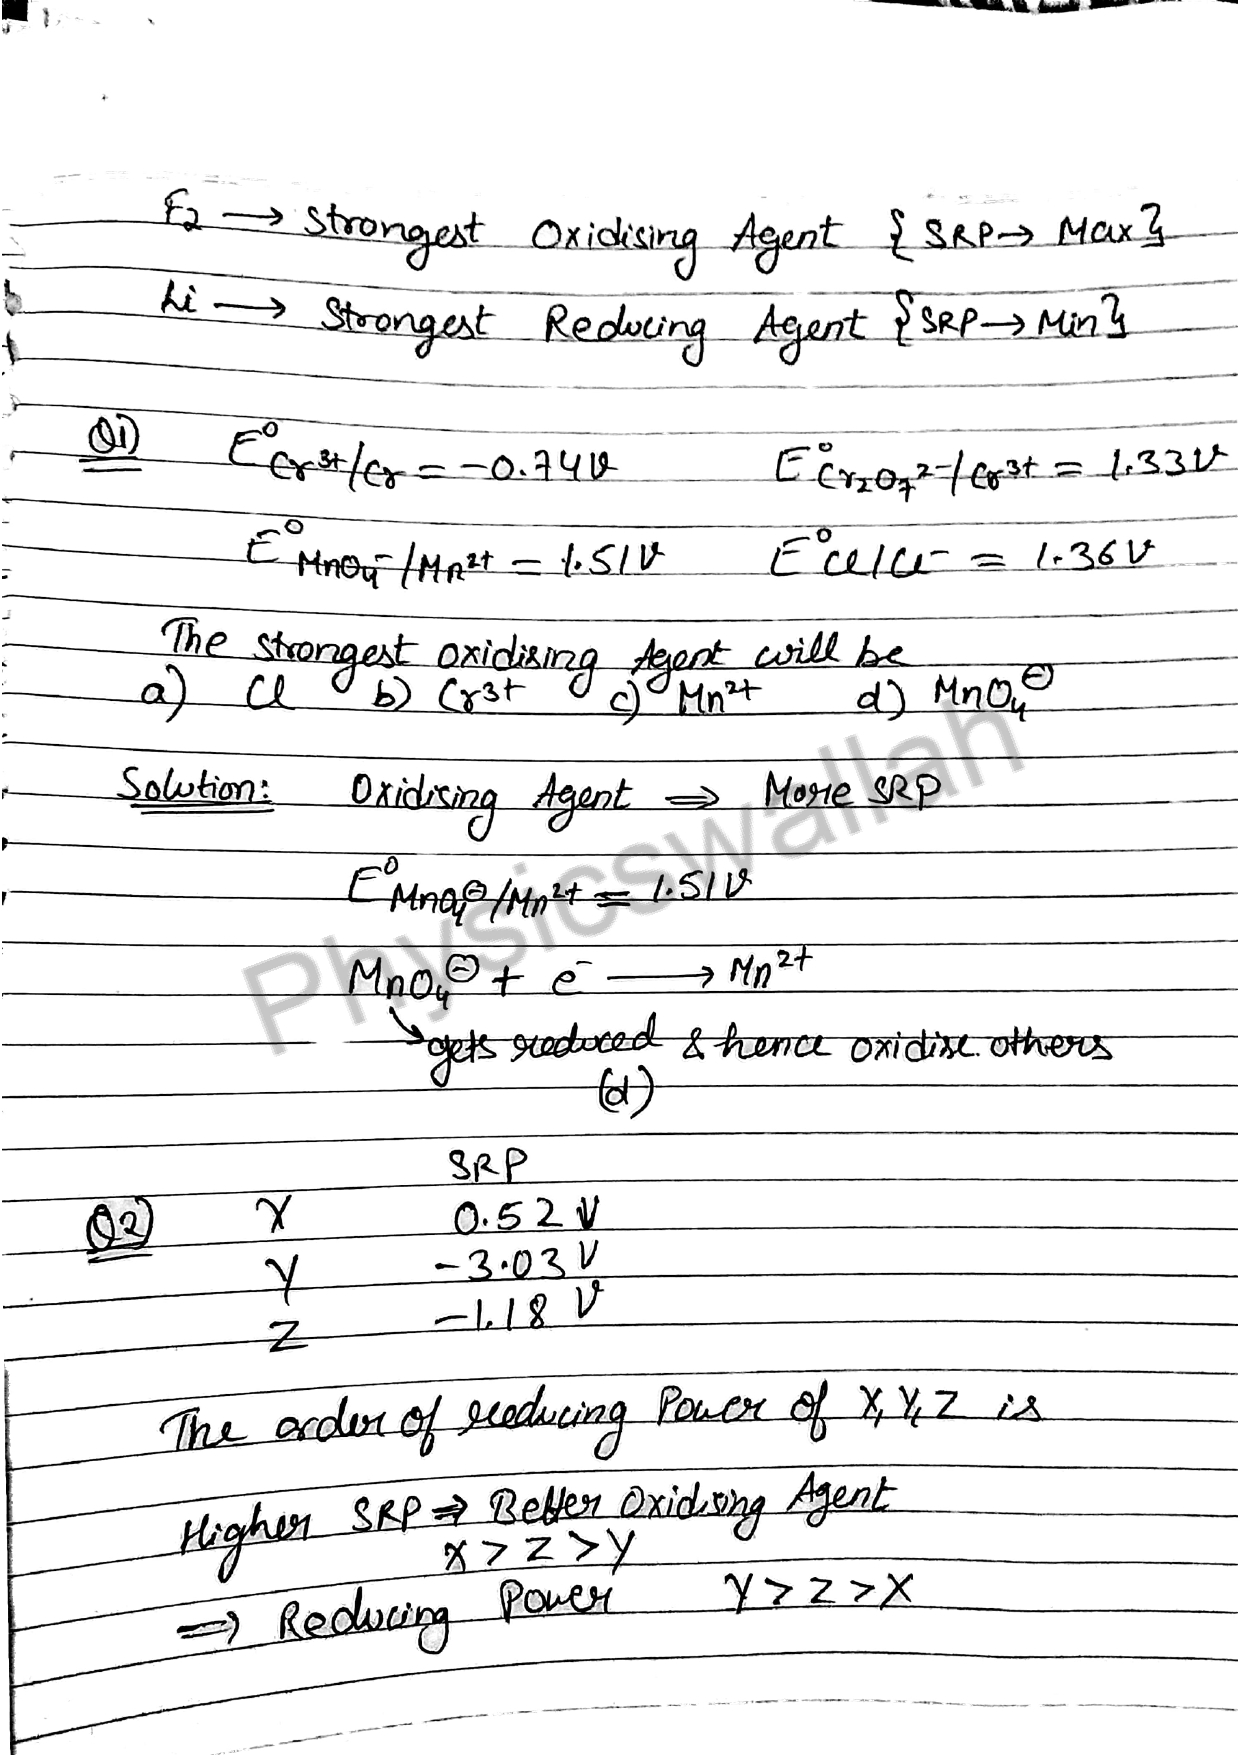 F₂ ⟶ Strongest Oxidising Agent {SRP→ Max}
Li ⟶ Strongest Reducing Agent {SRP→ Min}
Q1) E⁰Cr³⁺/Cr = -0.74V E⁰Cr₂O₇²⁻/Cr³⁺ = 1.33V
E⁰MnO₄⁻/Mn²⁺ = 1.51V E⁰Cl/Cl⁻ = 1.36V
The strongest oxidising Agent will be
a) Cl b) Cr³⁺ c) Mn²⁺ d) MnO₄⊖
Solution: Oxidising Agent ⇒ More SRP
E⁰MnO₄⊖/Mn²⁺ = 1.51V
MnO₄⊖ + e⁻ ⟶ Mn²⁺
gets reduced & hence oxidise others
(d)
SRP
Q2) X 0.52 V
Y -3.03 V
Z -1.18 V
The order of reducing Power of X, Y, Z is
Higher SRP ⇒ Better Oxidising Agent
X > Z > Y
⇒ Reducing Power Y > Z > X
Physicswallah